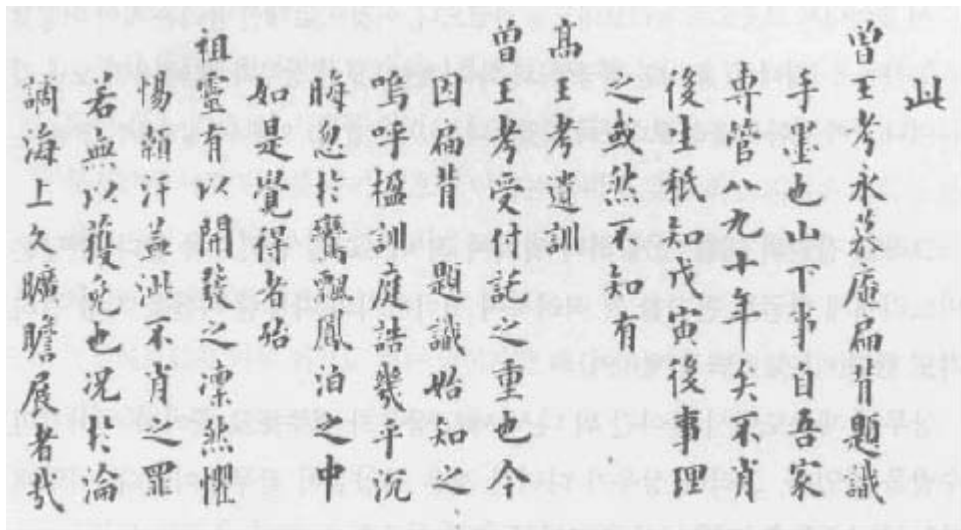 此
曾王考永慕庵扁背題識
手墨也山下事自吾家
専管八九十年矣不肖
後生秖知戊寅後事理
之或然不知有
高王考遺訓
曾王考受付託之重也今
因扁背 題識始知之
嗚呼楹訓庭誥幾乎沉
晦忽於鸞飄鳳泊之中
如是覺得者殆
祖靈有以開發之凜然懼
惕顙汗蓋泚不肖之罪
若益以蔑免也况於淪
謫海上久曠瞻展者哉